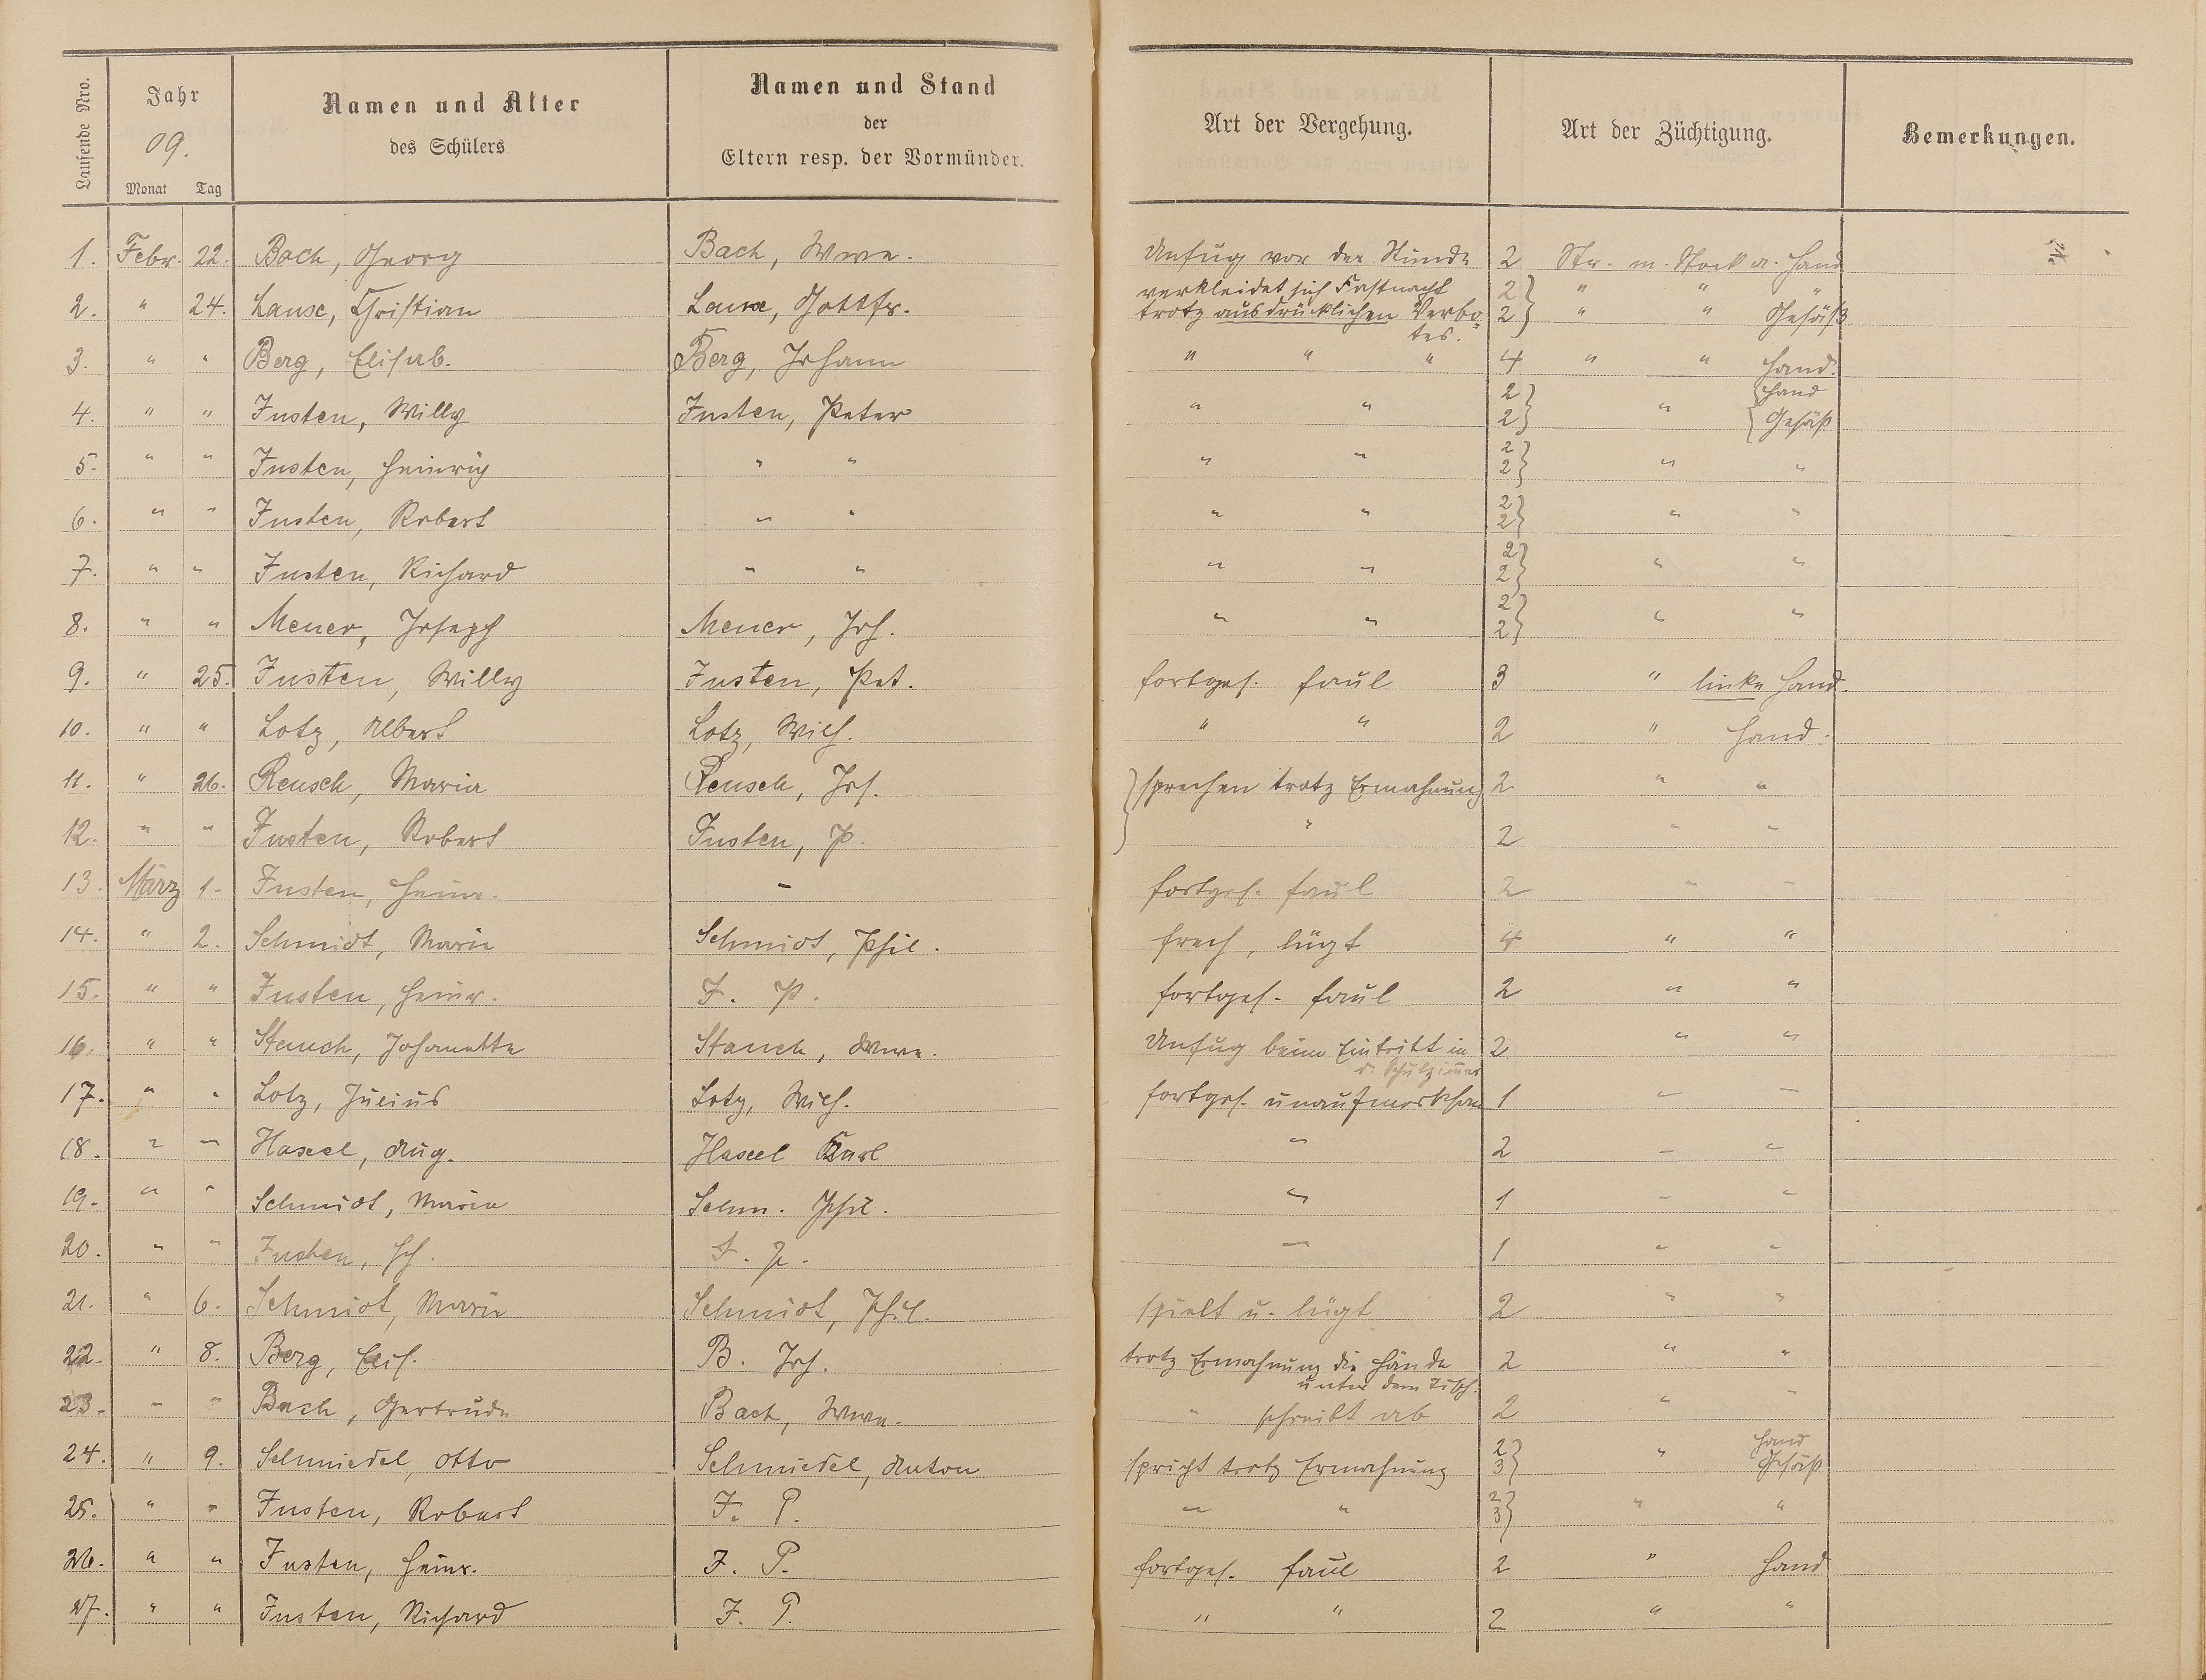 Laufende Nro.
Jahr
09.
Monat Tag
Namen und Alter
des Schülers
Namen und Stand
der
Eltern resp. der Vormünder.
Art der Vergehung.
Art der Züchtigung.
Bemerkungen.
1. Febr. 22. Bach, Georg Bach, Wwe. Unfug vor der Stunde 2 Str. m. Stock a. Hand
2. " 24. Lause, Christian Lause, Gottfr. verkleidet sich Fastnacht 2 } " " "
trotz ausdrücklichen Verbo= 2 } " " Gesäß
tes.
3. " " Berg, Elisab. Berg, Johann " " " 4 " " Hand.
4. " " Justen, Willy Justen, Peter " " 2 } " { Hand
2 } { Gesäß
5. " " Justen, Heinrich " " " " 2 } " "
2 }
6. " " Justen, Robert " " " " 2 } " "
2 }
7. " " Justen, Richard " " " " 2 } " "
2 }
8. " " Meuer, Joseph Meuer, Joh. " " 2 } " "
2 }
9. " 25. Justen, Willy Justen, Pet. fortges. faul 3 " linke Hand.
10. " " Lotz, Albert Lotz, Wilh. " " 2 " Hand.
11. " 26. Reusch, Maria Reusch, Joh. } sprechen trotz Ermahnung 2 " "
12. " " Justen, Robert Justen, P. } " 2 " "
13. März 1. Justen, Heinr. - fortges. faul 2 " "
14. " 2. Schmidt, Maria Schmidt, Phil. frech, lügt 4 " "
15. " " Justen, Heinr. J. P. fortges. faul 2 " "
16. " " Stauch, Johanette Stauch, Wwe. Unfug beim Eintritt in 2 " "
d. Schulzimer
17. " " Lotz, Julius Lotz, Wilh. fortges. unaufmerksam 1 " "
18. " " Hassel, Aug. Hassel Karl " 2 " "
19. " " Schmidt, Maria Schm. Phil. " 1 " "
20. " " Justen, Hch. J. P. " 1 " "
21. " 6. Schmidt, Maria Schmidt, Phil. spielt u. lügt 2 " "
22. " 8. Berg, Elis. B. Joh. trotz Ermahnung die Hände 2 " "
unter dem Tisch.
23. " " Bach, Gertrude Bach, Wwe. " schreibt ab 2 " "
24. " 9. Schmiedel, Otto Schmiedel, Anton spricht trotz Ermahnung 2 } " Hand
3 } Gesäß
25. " " Justen, Robert J. P. " " 2 } " "
3 }
26. " " Justen, Heinr. J. P. fortges. faul 2 " Hand
27. " " Justen, Richard J. P. " " 2 " "